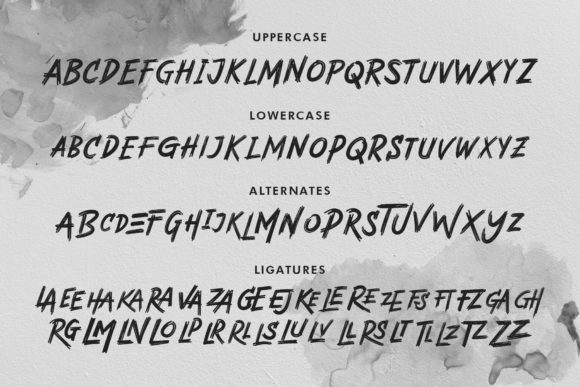 UPPERCASE
ABCDEFGHIJKLMNOPQRSTUVWXYZ
LOWERCASE
ABCDEFGHIJKLMNOPQRSTUVWXYZ
ALTERNATES
ABCDEFGHIJKLMNOPRSTUVWXYZ
LIGATURES
LA EE HA KA RA VA ZA GE EJ KE LE RE ZE FS FT FZ GA GH
RG LM LN LO LP LR RL LS LU LV LL RS LT TL LZ TZ ZZ